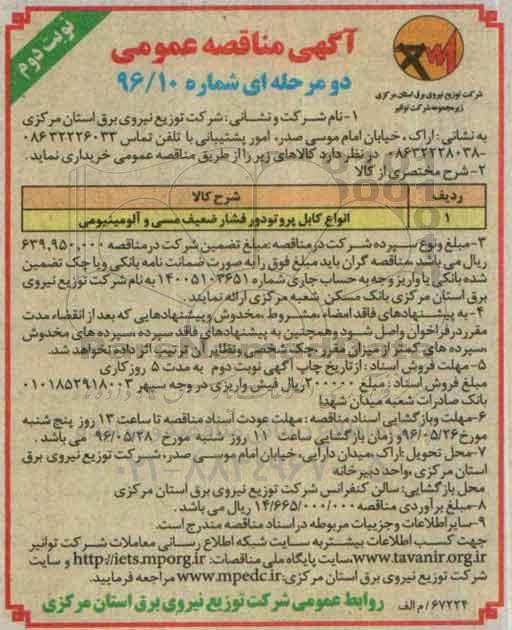 نوبت دوم
آگهی مناقصه عمومی
دو مرحله ای شماره ۹۶/۱۰
شرکت توزیع نیروی برق استان مرکزی
زیرمجموعه شرکت توانیر
۱-نام شرکت و نشانی: شرکت توزیع نیروی برق استان مرکزی
به نشانی: اراک، خیابان امام موسی صدر، امور پشتیبانی با تلفن تماس ۰۸۶۳۲۲۲۶۰۳۳
-۰۸۶۳۲۲۳۸۰۳۸ در نظر دارد کالاهای زیر را از طریق مناقصه عمومی خریداری نماید.
۲-شرح مختصری از کالا
ردیف شرح کالا
۱ انواع کابل پروتودور فشار ضعیف مسی و آلومینیومی
۳-مبلغ و نوع سپرده شرکت در مناقصه: مبلغ تضمین شرکت در مناقصه ۶۳۹.۹۵۰.۰۰۰
ریال می باشد. مناقصه گران باید مبلغ فوق را به صورت ضمانت نامه بانکی ویا چک تضمین
شده بانکی یا واریز وجه به حساب جاری شماره ۱۴۰۰۵۱۰۳۶۵۱ به نام شرکت توزیع نیروی
برق استان مرکزی بانک مسکن شعبه مرکزی ارائه نمایند.
۴-به پیشنهادهای فاقد امضاء، مشروط، مخدوش و پیشنهادهایی که بعد از انقضاء مدت
مقرر در فراخوان واصل شود و همچنین به پیشنهادهای فاقد سپرده، سپرده های مخدوش
،سپرده های کمتر از میزان مقرر، چک شخصی ونظایر آن ترتیب اثر داده نخواهد شد.
۵-مهلت فروش اسناد: از تاریخ چاپ آگهی نوبت دوم به مدت ۵ روز کاری
مبلغ فروش اسناد: مبلغ ۲۰۰۰۰۰ ریال فیش واریزی در وجه سپهر ۰۱۰۱۸۵۲۹۱۸۰۰۳
بانک صادرات شعبه میدان شهدا
۶-مهلت وبازگشایی اسناد مناقصه: مهلت عودت اسناد مناقصه تا ساعت ۱۳ روز پنج شنبه
مورخ ۹۶/۰۵/۲۶ و زمان بازگشایی ساعت ۱۱ روز شنبه مورخ ۹۶/۰۵/۲۸ می باشد.
۷-محل تحویل: اراک، میدان دارایی، خیابان امام موسی صدر، شرکت توزیع نیروی برق
استان مرکزی، واحد دبیرخانه
محل بازگشایی: سالن کنفرانس شرکت توزیع نیروی برق استان مرکزی
۸-مبلغ برآوردی مناقصه ۱۴/۶۶۵/۰۰۰/۰۰۰ ریال می باشد.
۹-سایر اطلاعات وجزییات مربوطه در اسناد مناقصه مندرج است.
جهت کسب اطلاعات بیشتر به سایت شبکه اطلاع رسانی معاملات شرکت توانیر
www.tavanir.org.ir، سایت پایگاه ملی مناقصات: http://iets.mporg.ir و سایت
شرکت توزیع نیروی برق استان مرکزی: www.mpedc.ir مراجعه فرمایید.
۶۷۲۲۴/م الف روابط عمومی شرکت توزیع نیروی برق استان مرکزی